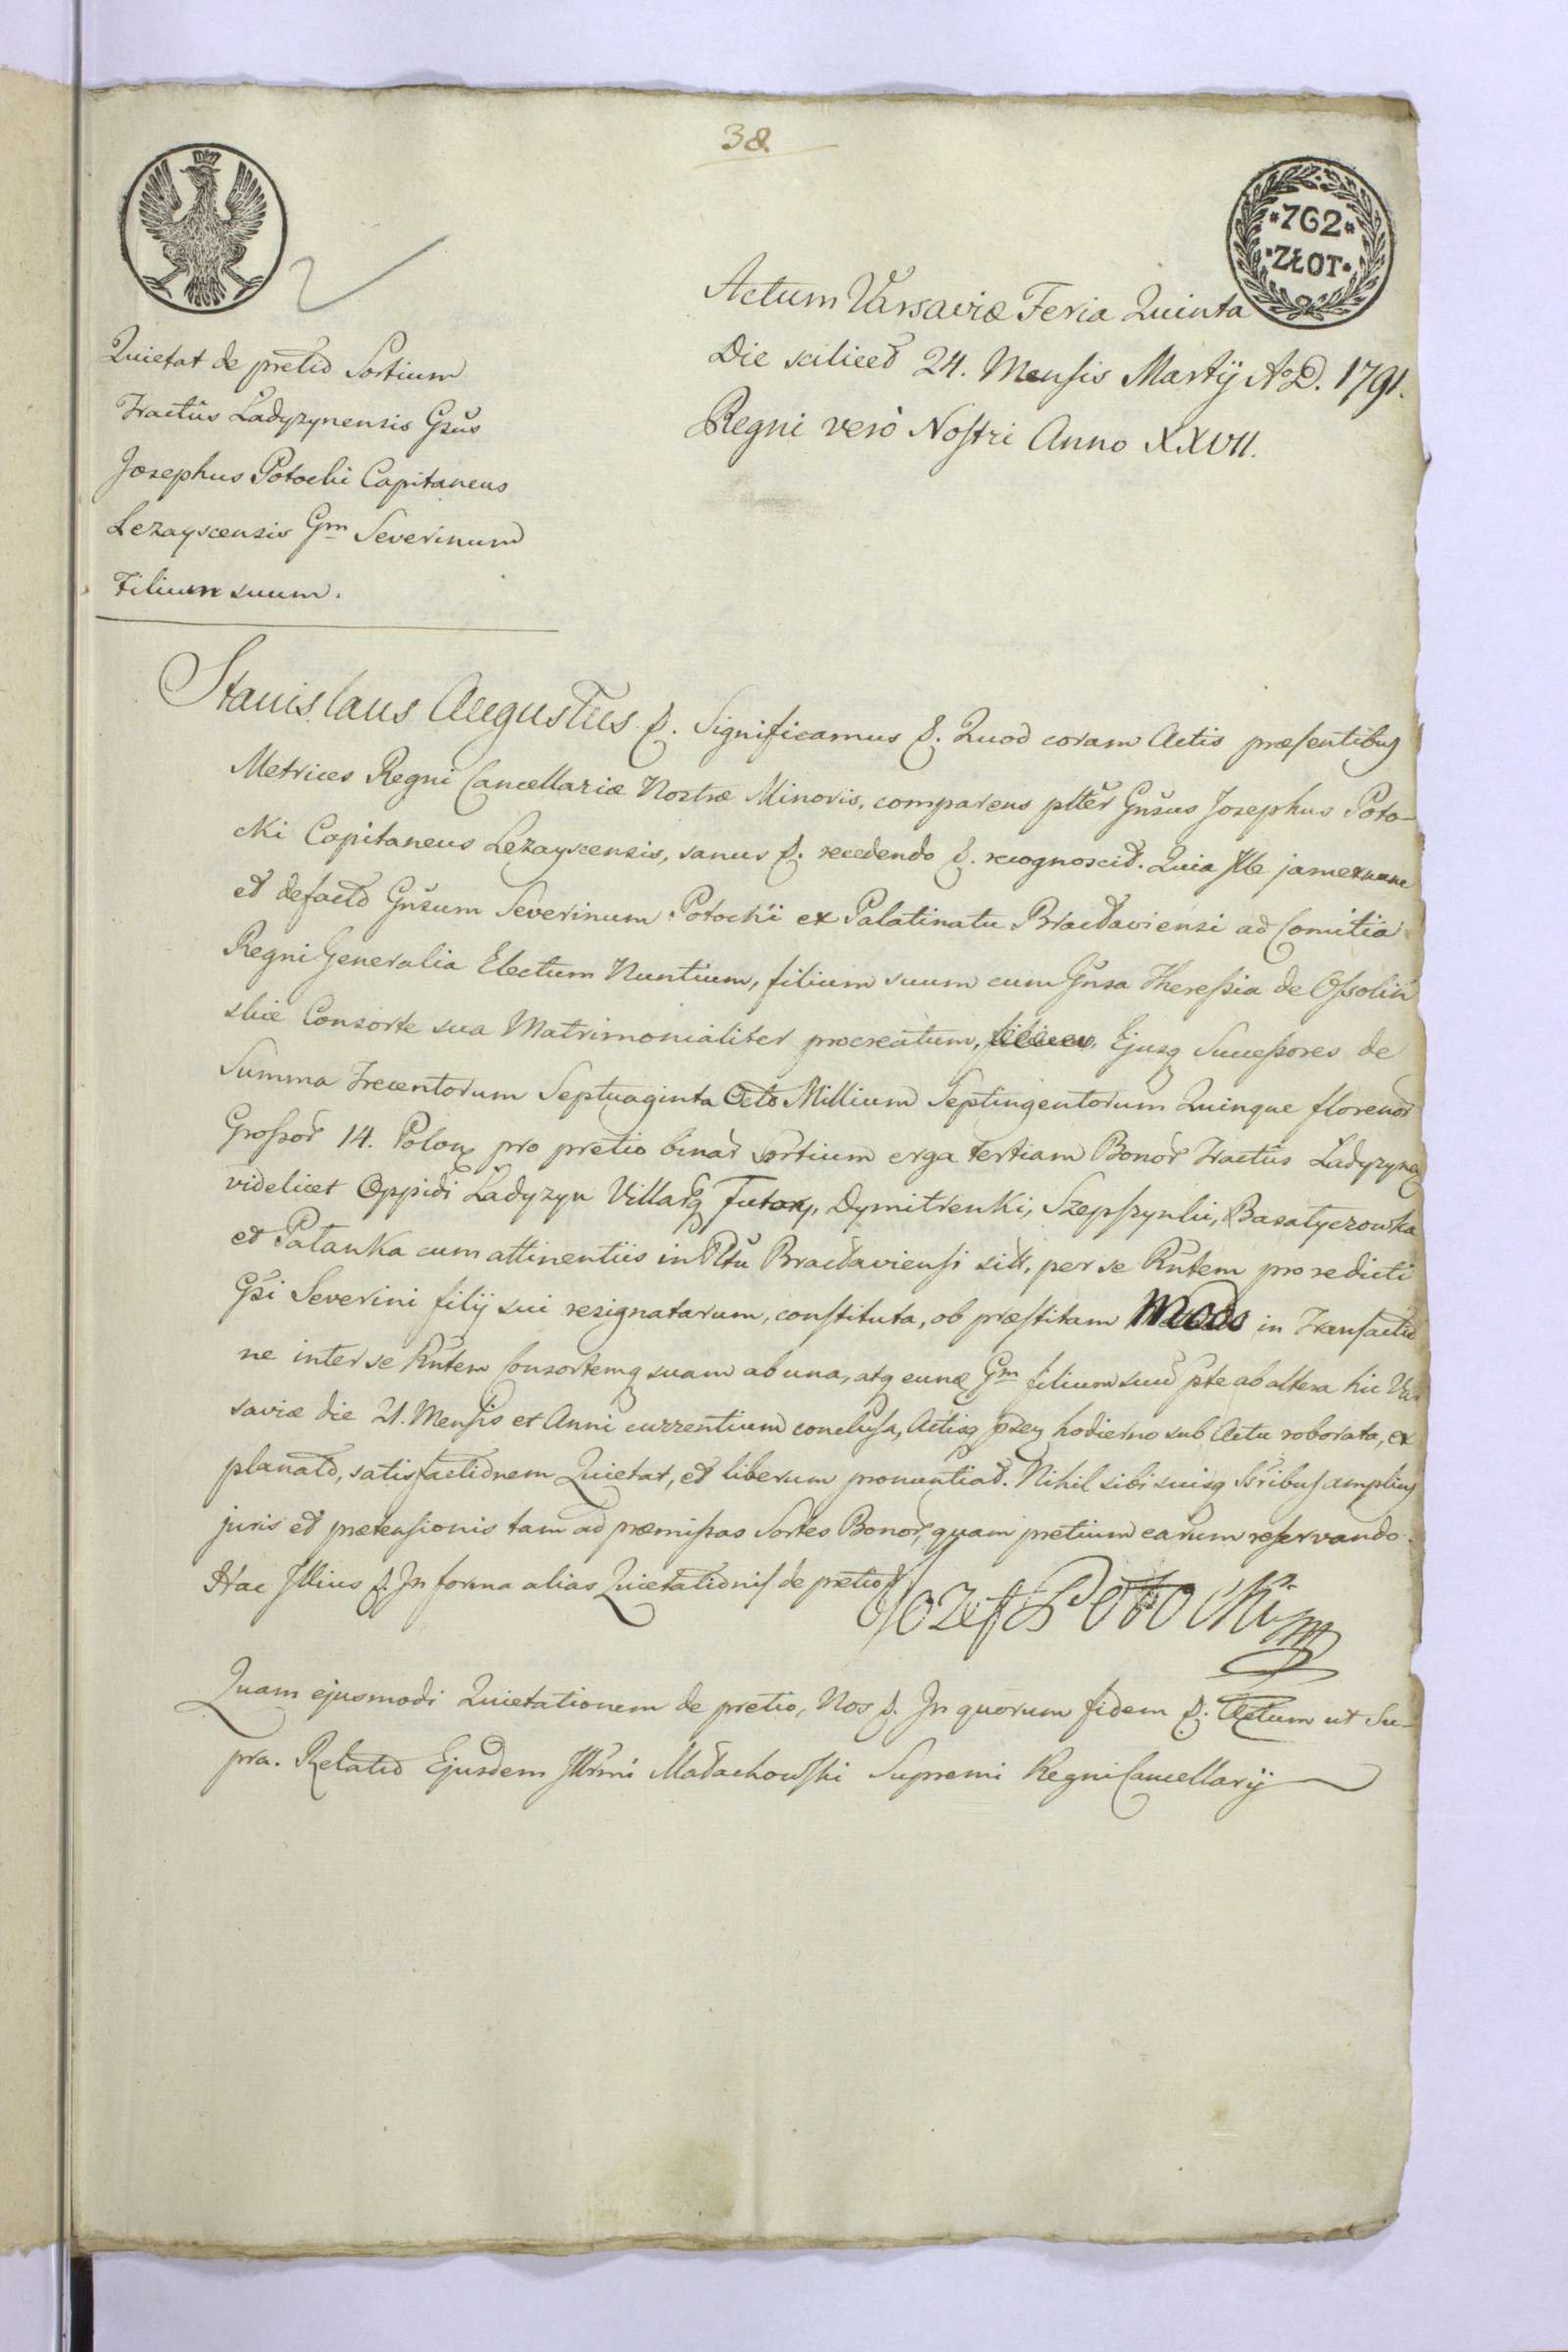 38.
762
ZŁOT
Actum Varsaviæ Feria Quinta
Die scilicet 24. Mensis Martÿ A͞o D. 1791.
Regni verò Nostri Anno XXVII.
Quietat de pretio Sortium
Tractûs Ładyzynensis Gsus
Josephus Potocki Capitaneus
Lezayscensis Gm Severinum
Filium suum.
Stanislaus Augustus &. Significamus &. Quod coram Actis præsentibus
Metrices Regni Cancellariæ Nostræ Minoris, comparens plter Gnsus Josephus Poto-
cki Capitaneus Lezayscensis, sanus &. recedendo &. recognoscit. Quia Ille jam exnunc
et defacto Gnsum Severinum Potocki ex Palatinatu Bracłaviensi ad Comitia
Regni Generalia Electum Nuntium, filium suum cum Gnsa Theressia de Ossoliń
skie Consorte sua Matrimonialiter procreatum, Ejusq Successores de
Summa Trecentorum Septuaginta Octo Millium Septingentorum Quinque florenor
Grossor 14. Polon pro pretio binar Sortium erga tertiam Bonor Tractûs Ładyzynen
videlicet Oppidi Ładyzyn Villarq Futory, Dymitrenki, Szepszynki, Basałyczowka
et Pałanka cum attinentiis in Pltu Bracłaviensi sitt, per se Rntem pro redicti
Gsi Severini filij sui resignatarum, constituta, ob præstitam modo in Transactio
ne inter se Rntem Consortemq suam ab una, atq eunq Gm filium suũ pte ab altera hic Var
saviæ die 21. Mensis et Anni currentium conclusa, Actisq psen hodierno sub Actu roborata, ex
planato, satisfactionem Quietat, et liberum pronuntiat. Nihil sibi suisq Ssribus amplius
juris et prætensionis tam ad præmissas Sortes Bonor, quam pretium earum reservando.
Hac Illius &. In forma alias Quietationis de pretio
Jozef Potocki mp
Quam ejusmodi Quietationem de pretio, Nos &. In quorum fidem &. Actum ut Su-
pra. Relatio Ejusdem Illrmi Małachowski Supremi Regni Cancellarÿ